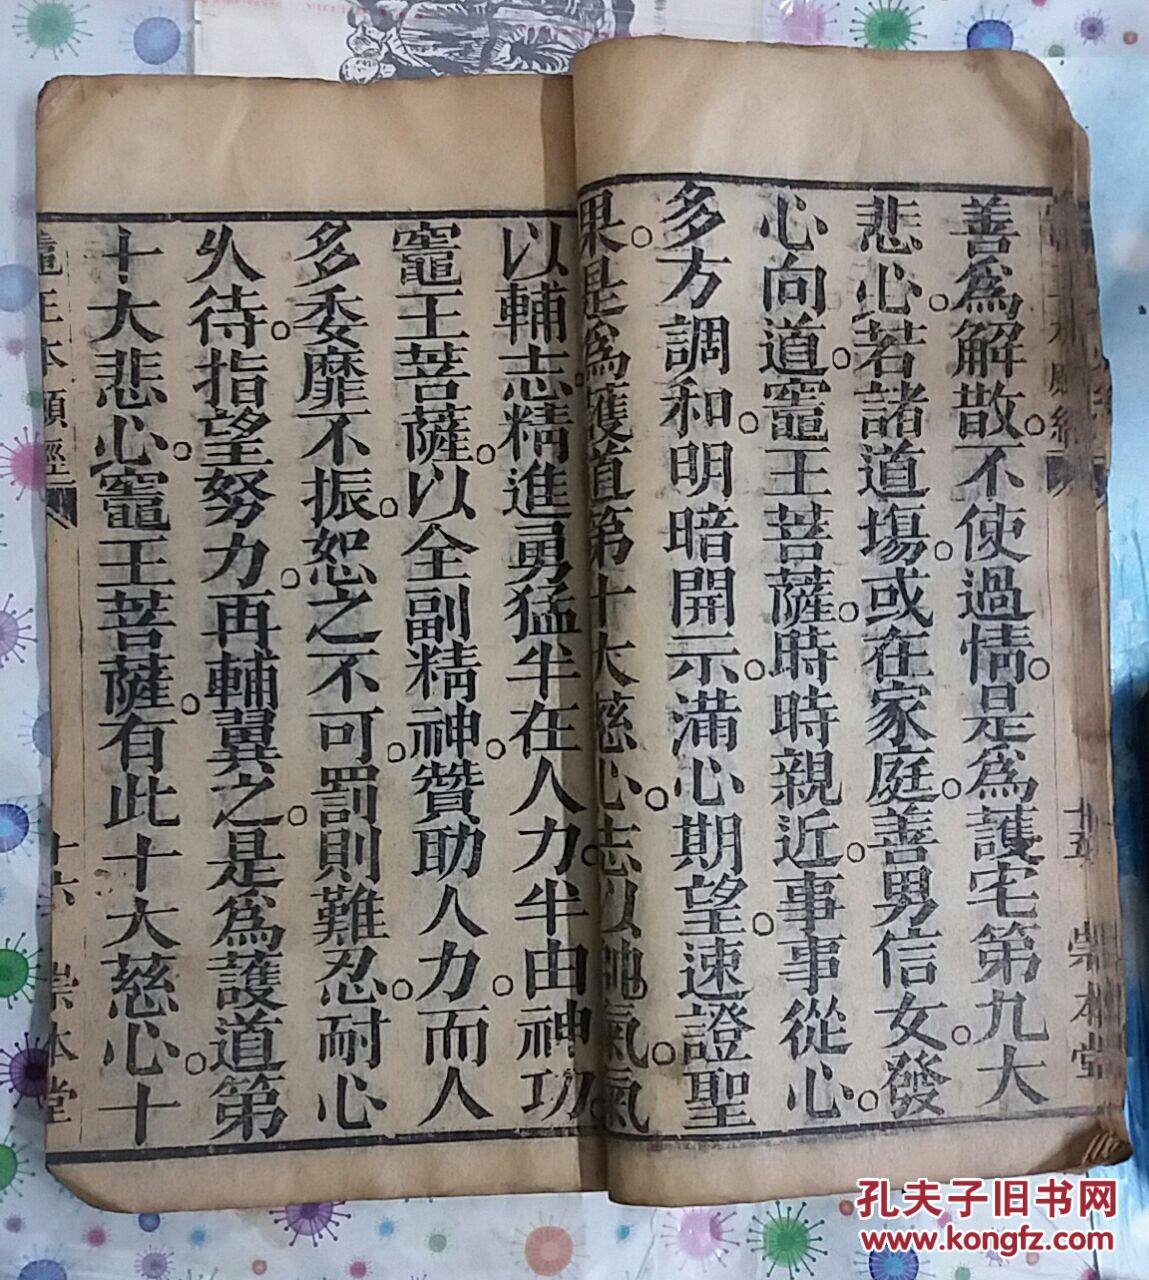 善為解散。不使過情。是為護宅第九大
悲心。若諸道塲。或在家庭。善男信女。發
心向道。竈王菩薩。時時親近。事事從心。
多方調和。明暗開示。滿心期望。速證聖
果。是為護道第十大慈心。志以帥氣。氣
十五
崇本堂
以輔志。精進勇猛。半在人力。半由神功。
竈王菩薩。以全副精神。贊助人力。而人
多委靡不振。恕之不可。罰則難忍。耐心
久待。指望努力。再輔翼之。是為護道第
十大悲心。竈王菩薩。有此十大慈心。十
竈王本願經
十六
崇本堂
孔夫子旧书网
www.kongfz.com